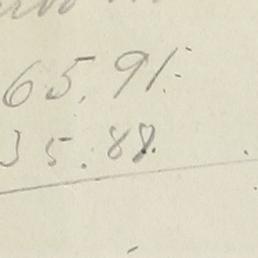 65.91
35.88